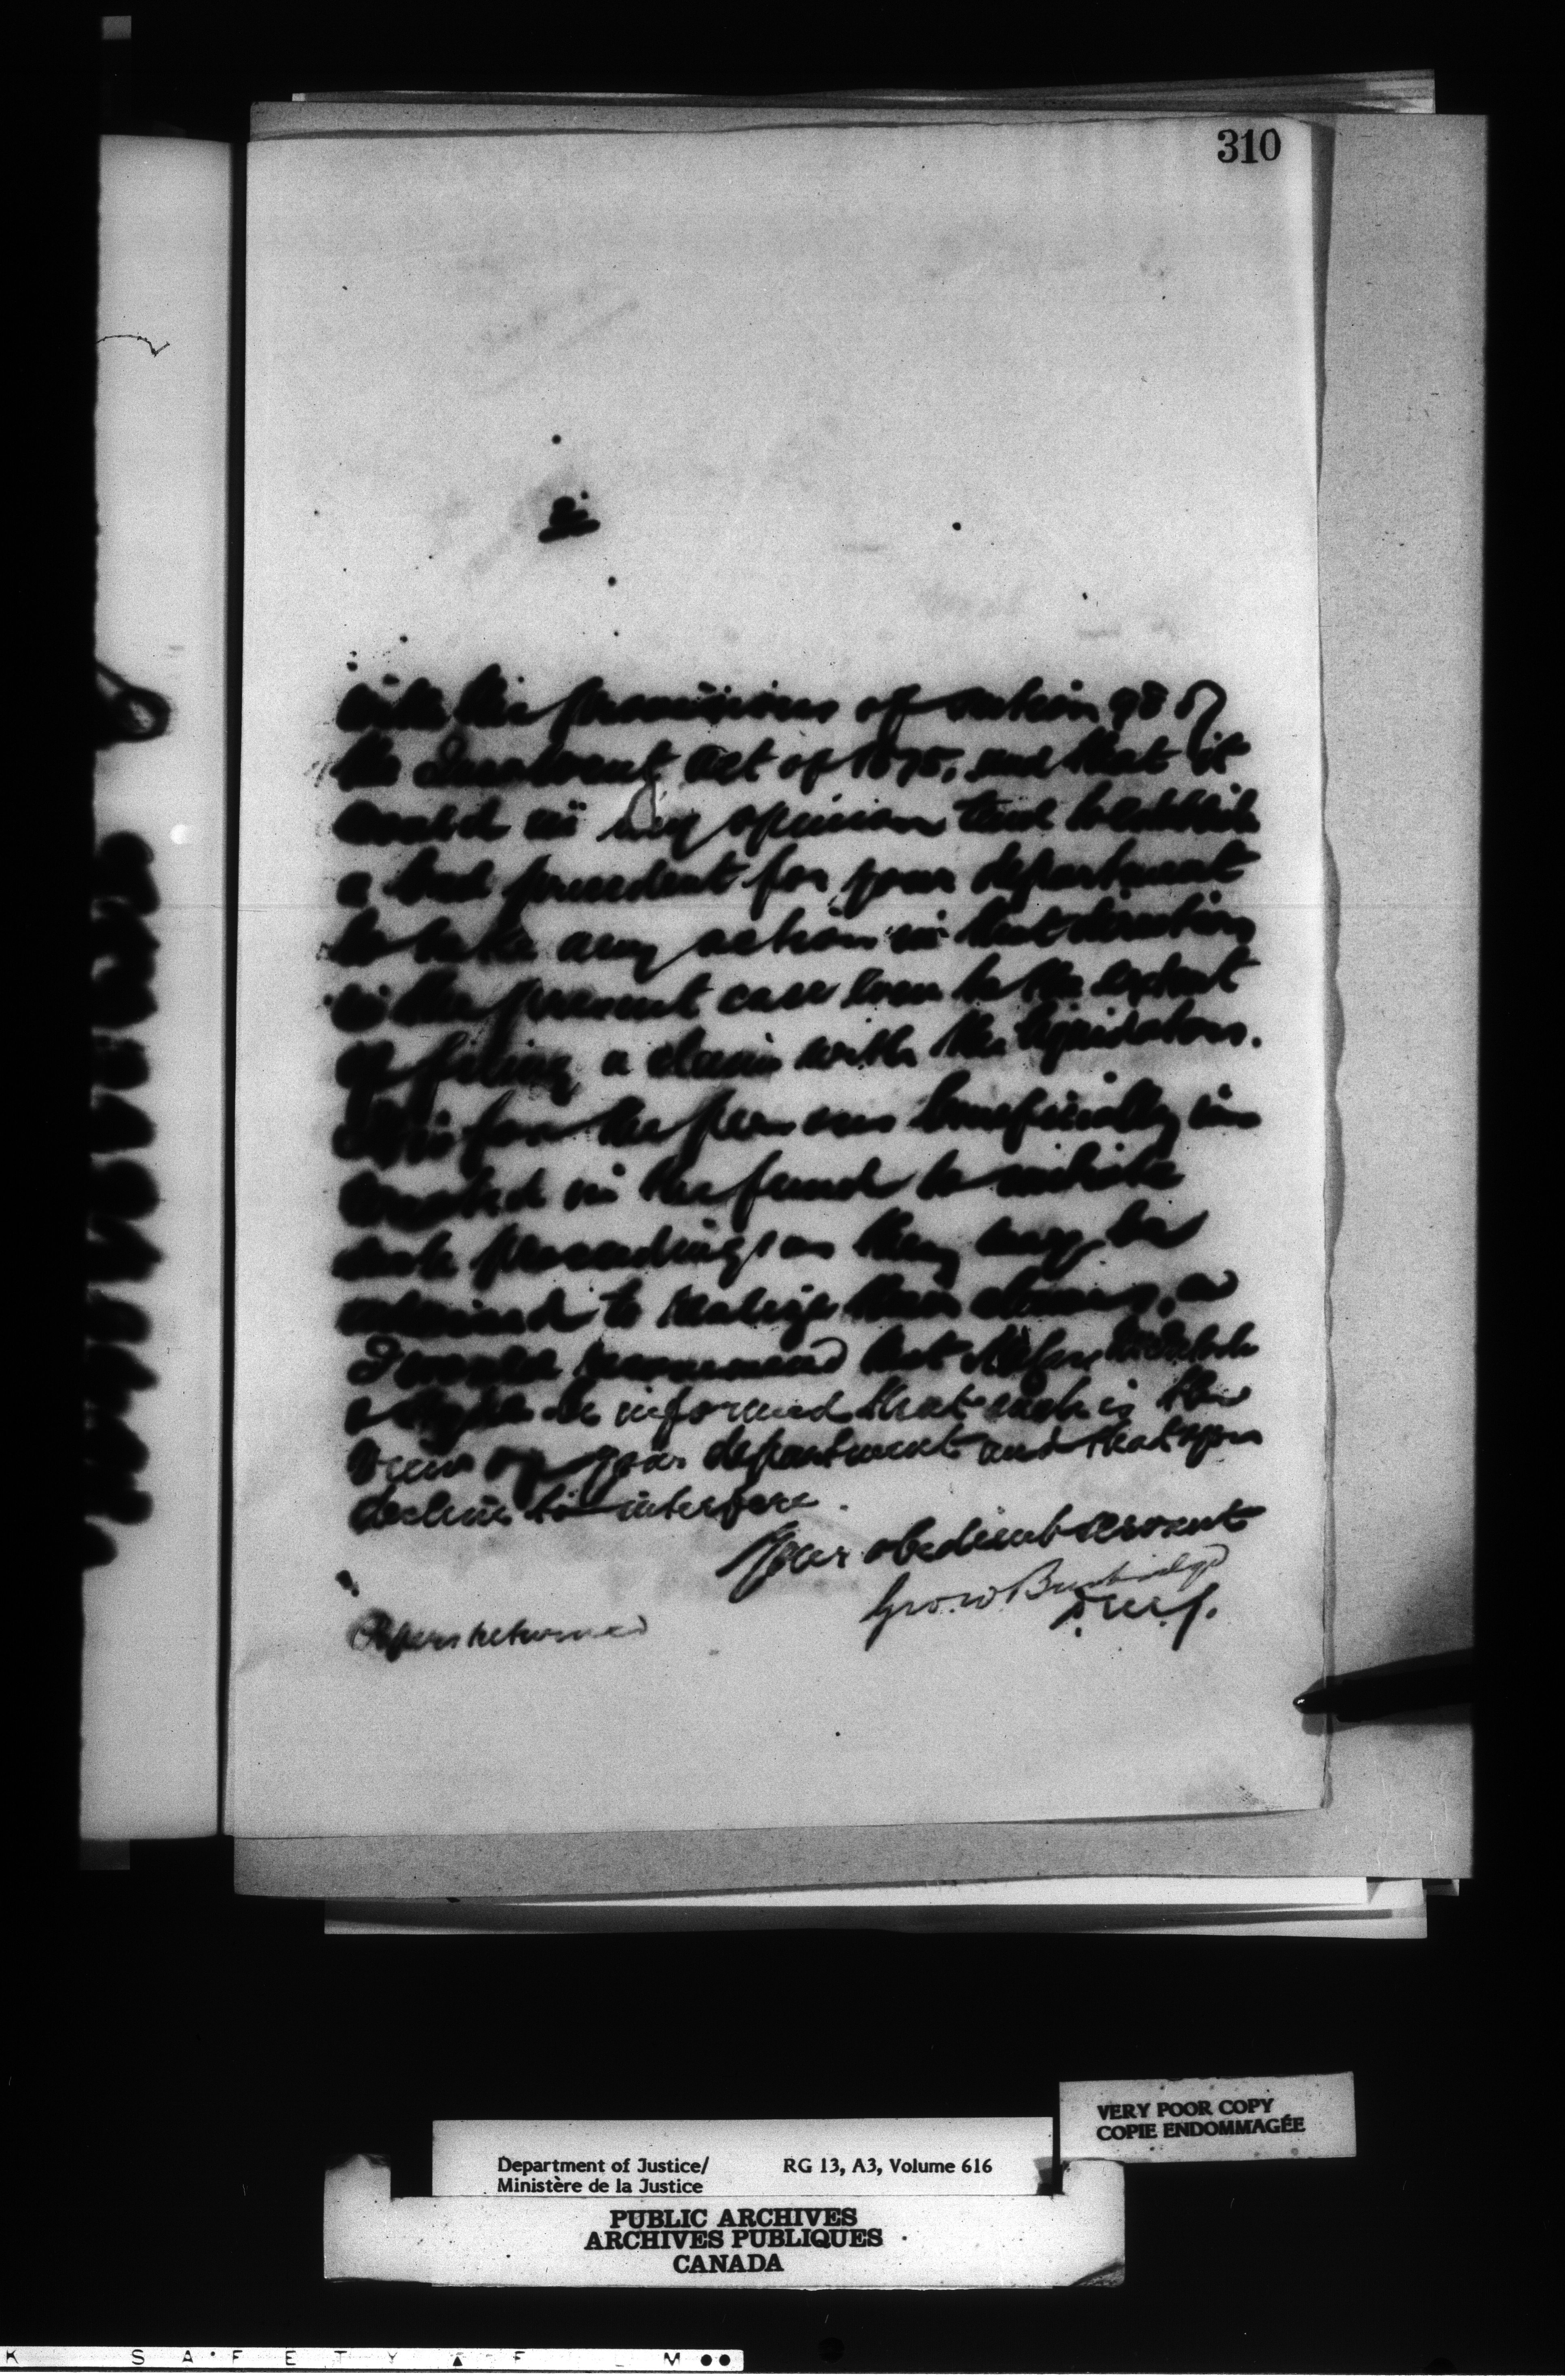 310
2
with the provisions of section 98 of
the Insolvent Act of 1875, and that it
would in my opinion tend to establish
a bad precedent for your department
to take any action in that direction
in the present case even to the extent
of filing a claim with the liquidators.
It is for the persons beneficially in
terested in the fund to institute
such proceedings as they may be
advised to realize their claims, &
I would recommend that Messrs
be informed that such is the
view of your department and that you
decline to interfere.
Your obedient servant
Geo. W Burbidge
D.M.J.
Papers returned
VERY POOR COPY
COPIE ENDOMMAGÉE
Department of Justice/ RG 13, A3, Volume 616
Ministère de la Justice
PUBLIC ARCHIVES
ARCHIVES PUBLIQUES
CANADA
K SAFETY F M